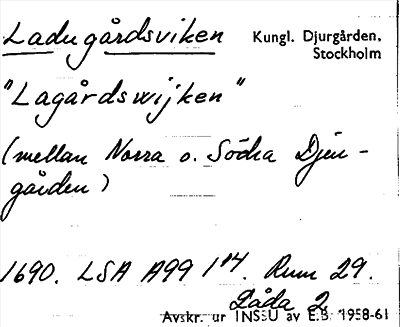 Ladugårdsviken
Kungl. Djurgården,
Stockholm
"Lagårdswijken"
(mellan Norra o. Södra Djur-
gården)
1690. LSA A99 1:14. Rum 29.
Låda 2
Avskr. ur INSSU av E.B. 1958-61